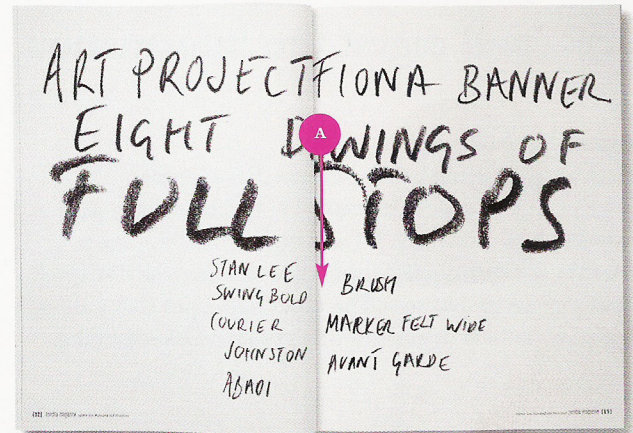 ART PROJECT FIONA BANNER
EIGHT DRAWINGS OF
FULL STOPS
A
STAN LEE
SWING BOLD
COURIER
JOHNSTON
ABADI
BRUSH
MARKER FELT WIDE
AVANT GARDE